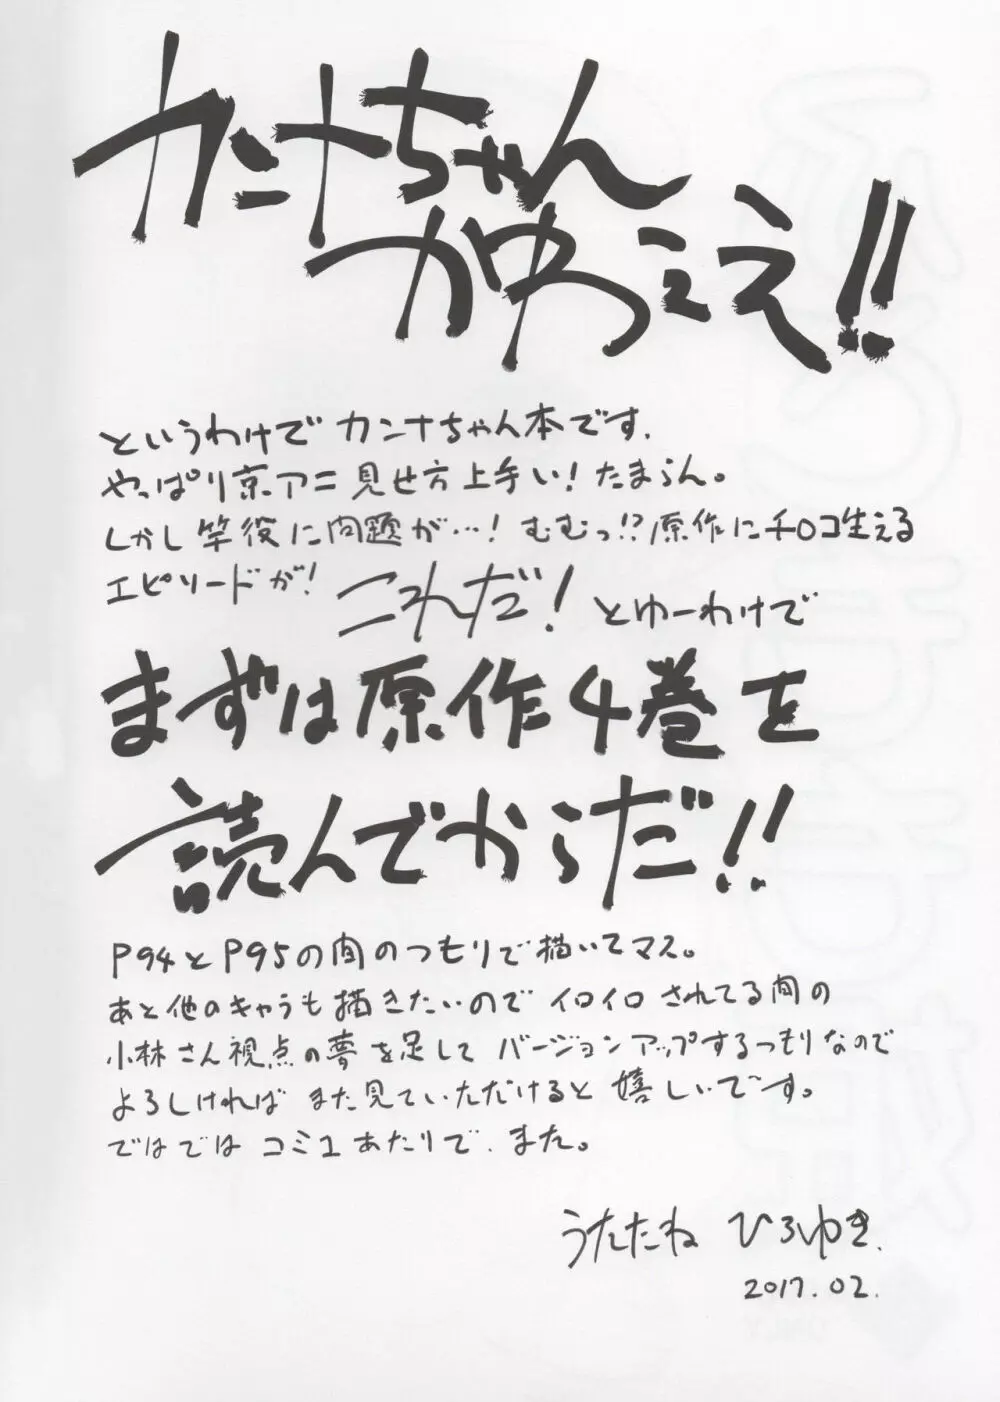 カンナちゃん
かわぇえ!!
というわけで カンナちゃん本です.
やっぱり京アニ 見せ方上手い! たまらん。
しかし 竿役に問題が…! むむっ!? 原作にチ○コ生える
エピソードが! これだ! とゆーわけで
まずは原作4巻を
読んでからだ!!
P94とP95の間のつもりで描いてマス。
あと他のキャラも描きたいので イロイロされてる間の
小林さん視点の夢を足して バージョンアップするつもりなので
よろしければ また見ていただけると 嬉しいです。
ではでは コミ1あたりで. また。
うたたね ひろゆき.
2017.02.